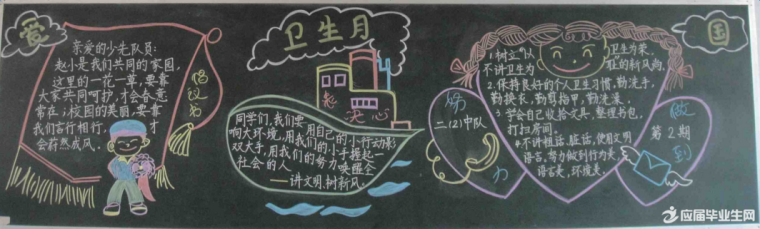 爱
卫生月
国
亲爱的少先队员:
赵小是我们共同的家园,
这里的一花一草,要靠
大家共同呵护,才会春意
常在;校园的美丽,要靠
我们言行相行,才
会蔚然成风。
倡议书
决心
同学们,我们要用自己的小行动影
响大环境,用我们的小手握起一
双大手,用我们的努力唤醒全
社会的人
——讲文明,树新风。
1.树立“以
卫生为荣,
不讲卫生为
耻的新风尚。
2.保持良好的个人卫生习惯,勤洗手,
勤换衣,勤剪指甲,勤洗澡。
3.学会自己收拾文具,整理书包,
打扫房间。
4.不讲粗话,脏话,使用文明
语言,努力做到行为美,
语言美,环境美。
努
力
做
到
二(2)中队
第2期
应届毕业生网